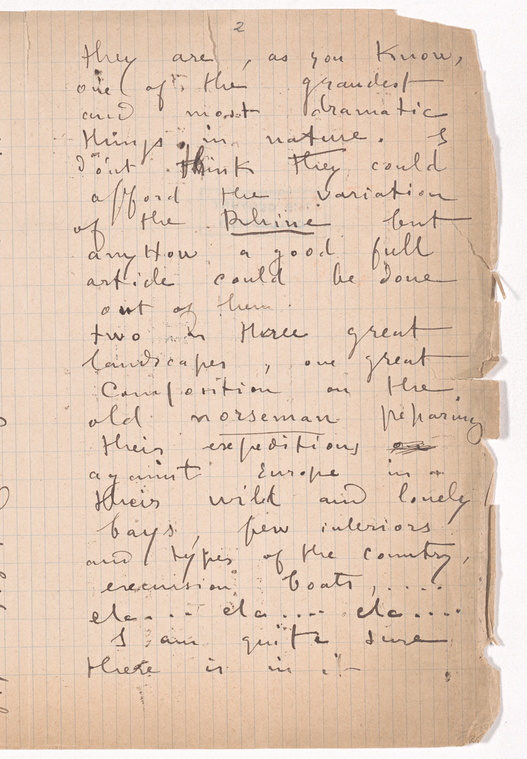 2
they are, as you know,
one of the grandest
and most dramatic
things in nature. I
don't think they could
afford the variation
of the Rhine but
anyHow a good full
article could be done
out of them.
two or three great
landscapes, one great
Composition on the
old norseman peparing
their expeditions
against Europe in
their wild and lonely
bays, few interiors
and types of the country,
excursion boats, ....
etc... etc.... etc....
I am quite sure
there is in it